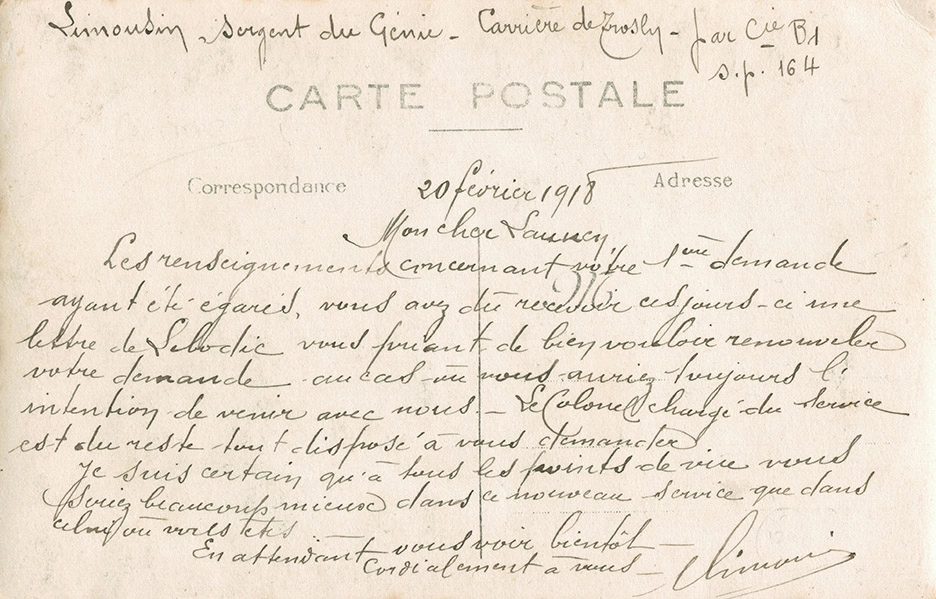 Limousin Sergent du Génie - Carrière de Trosly - par Cie B1
S.P. 164
CARTE POSTALE
Correspondance
20 février 1918
Adresse
Mon cher Launey
Les renseignements concernant votre 1ère demande
ayant été égarés, vous avez dû recevoir ces jours-ci une
lettre de Lebodic vous priant de bien vouloir renouveler
votre demande au cas où vous auriez toujours l'
intention de venir avec nous - Le Colonel chargé du service
est du reste tout disposé à vous demander
Je suis certain qu'à tous les points de vue vous
seriez beaucoup mieux dans ce nouveau service que dans
celui où vous êtes
En attendant vous voir bientôt -
Cordialement à vous - Limousin